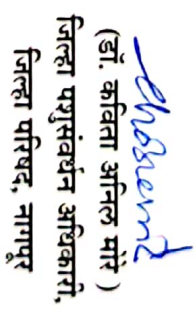 (डॉ. कविता अनिल मोरे )
जिल्हा पशुसंवर्धन अधिकारी,
जिल्हा परिषद, नागपूर